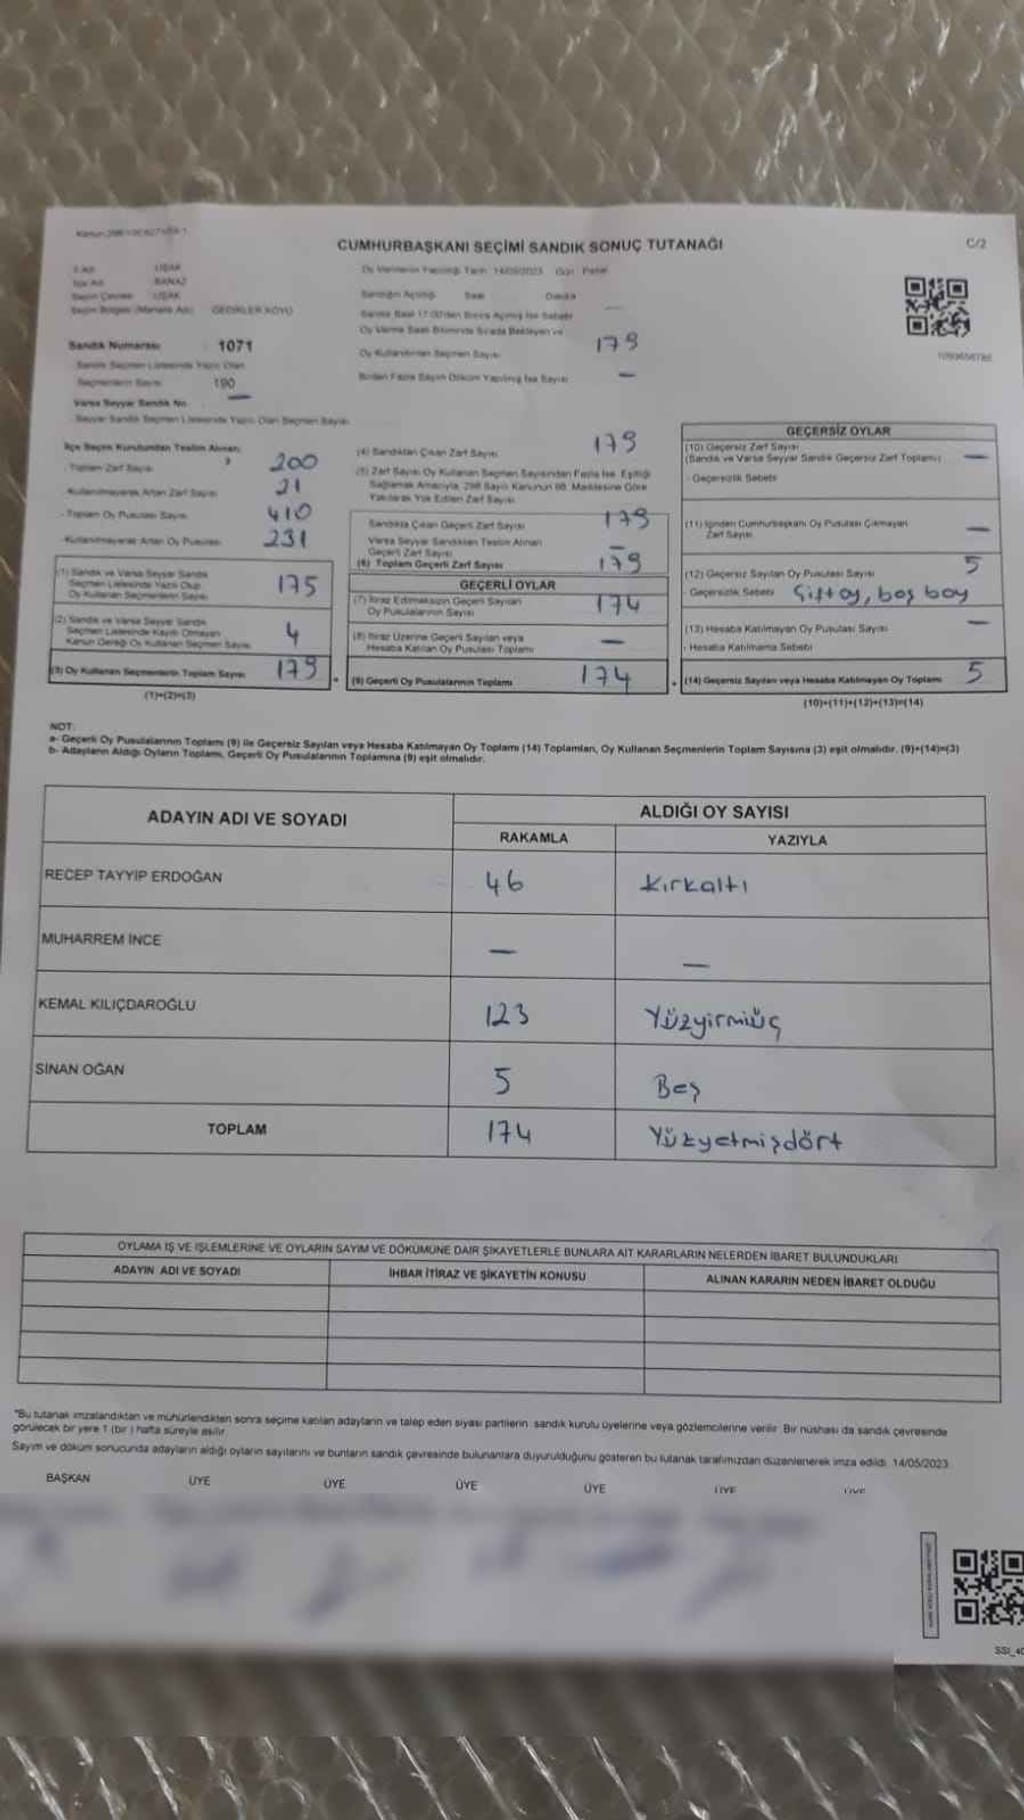 CUMHURBAŞKANI SEÇİMİ SANDIK SONUÇ TUTANAĞI
C/2
UŞAK
BANAZ
Seçim Çevresi UŞAK
Oy Vermenin Yapıldığı Tarih 14/05/2023 Gün Pazar
Sandığın Açıldığı Saat Dakika
Oy Kullandırılan Seçmen Sayısı 179
Birden Fazla Sayım Döküm Yapılmış İse Sayısı —
Sandık Numarası 1071
Sandık Seçmen Listesinde Yazılı Olan
Seçmenlerin Sayısı 190
Varsa Seyyar Sandık No —
Seyyar Sandık Seçmen Listesinde Yazılı Olan Seçmen Sayısı
İlçe Seçim Kurulundan Teslim Alınan;
- Toplam Zarf Sayısı 200
- Kullanılmayarak Artan Zarf Sayısı 21
- Toplam Oy Pusulası Sayısı 410
- Kullanılmayarak Artan Oy Pusulası 231
(1) Sandık ve Varsa Seyyar Sandık
Seçmen Listesinde Yazılı Olup
Oy Kullanan Seçmenlerin Sayısı 175
(2) Sandık ve Varsa Seyyar Sandık
Seçmen Listesinde Kayıtlı Olmayan
Kanun Gereği Oy Kullanan Seçmen Sayısı 4
(3) Oy Kullanan Seçmenlerin Toplam Sayısı 179
(1)+(2)=(3)
(4) Sandıktan Çıkan Zarf Sayısı 179
(5) Zarf Sayısı Oy Kullanan Seçmen Sayısından Fazla İse, Eşitliği
Sağlamak Amacıyla, 298 Sayılı Kanunun 98. Maddesine Göre
Yakılarak Yok Edilen Zarf Sayısı
Sandıkta Çıkan Geçerli Zarf Sayısı 179
Varsa Seyyar Sandıktan Teslim Alınan
Geçerli Zarf Sayısı —
(6) Toplam Geçerli Zarf Sayısı 179
GEÇERLİ OYLAR
(7) İtiraz Edilmeksizin Geçerli Sayılan
Oy Pusulalarının Sayısı 174
(8) İtiraz Üzerine Geçerli Sayılan veya
Hesaba Katılan Oy Pusulası Toplamı —
(9) Geçerli Oy Pusulalarının Toplamı 174
GEÇERSİZ OYLAR
(10) Geçersiz Zarf Sayısı
(Sandık ve Varsa Seyyar Sandık Geçersiz Zarf Toplamı) —
- Geçersizlik Sebebi
(11) İçinden Cumhurbaşkanı Oy Pusulası Çıkmayan
Zarf Sayısı —
(12) Geçersiz Sayılan Oy Pusulası Sayısı 5
- Geçersizlik Sebebi Çift oy, boş boy
(13) Hesaba Katılmayan Oy Pusulası Sayısı —
- Hesaba Katılmama Sebebi
(14) Geçersiz Sayılan veya Hesaba Katılmayan Oy Toplamı 5
(10)+(11)+(12)+(13)=(14)
NOT:
a- Geçerli Oy Pusulalarının Toplamı (9) ile Geçersiz Sayılan veya Hesaba Katılmayan Oy Toplamı (14) Toplamları, Oy Kullanan Seçmenlerin Toplam Sayısına (3) eşit olmalıdır. (9)+(14)=(3)
b- Adayların Aldığı Oyların Toplamı, Geçerli Oy Pusulalarının Toplamına (9) eşit olmalıdır.
ADAYIN ADI VE SOYADI ALDIĞI OY SAYISI
RAKAMLA YAZIYLA
RECEP TAYYİP ERDOĞAN 46 Kırkaltı
MUHARREM İNCE — —
KEMAL KILIÇDAROĞLU 123 Yüzyirmiüç
SİNAN OĞAN 5 Beş
TOPLAM 174 Yüzyetmişdört
OYLAMA İŞ VE İŞLEMLERİNE VE OYLARIN SAYIM VE DÖKÜMÜNE DAİR ŞİKAYETLERLE BUNLARA AİT KARARLARIN NELERDEN İBARET BULUNDUKLARI
ADAYIN ADI VE SOYADI İHBAR İTİRAZ VE ŞİKAYETİN KONUSU ALINAN KARARIN NEDEN İBARET OLDUĞU
"Bu tutanak imzalandıktan ve mühürlendikten sonra seçime katılan adayların ve talep eden siyasi partilerin sandık kurulu üyelerine veya gözlemcilerine verilir. Bir nüshası da sandık çevresinde
görülecek bir yere 1 (bir) hafta süreyle asılır.
Sayım ve döküm sonucunda adayların aldığı oyların sayılarını ve bunların sandık çevresinde bulunanlara duyurulduğunu gösteren bu tutanak tarafımızdan düzenlenerek imza edildi. 14/05/2023
BAŞKAN ÜYE ÜYE ÜYE ÜYE ÜYE ÜYE